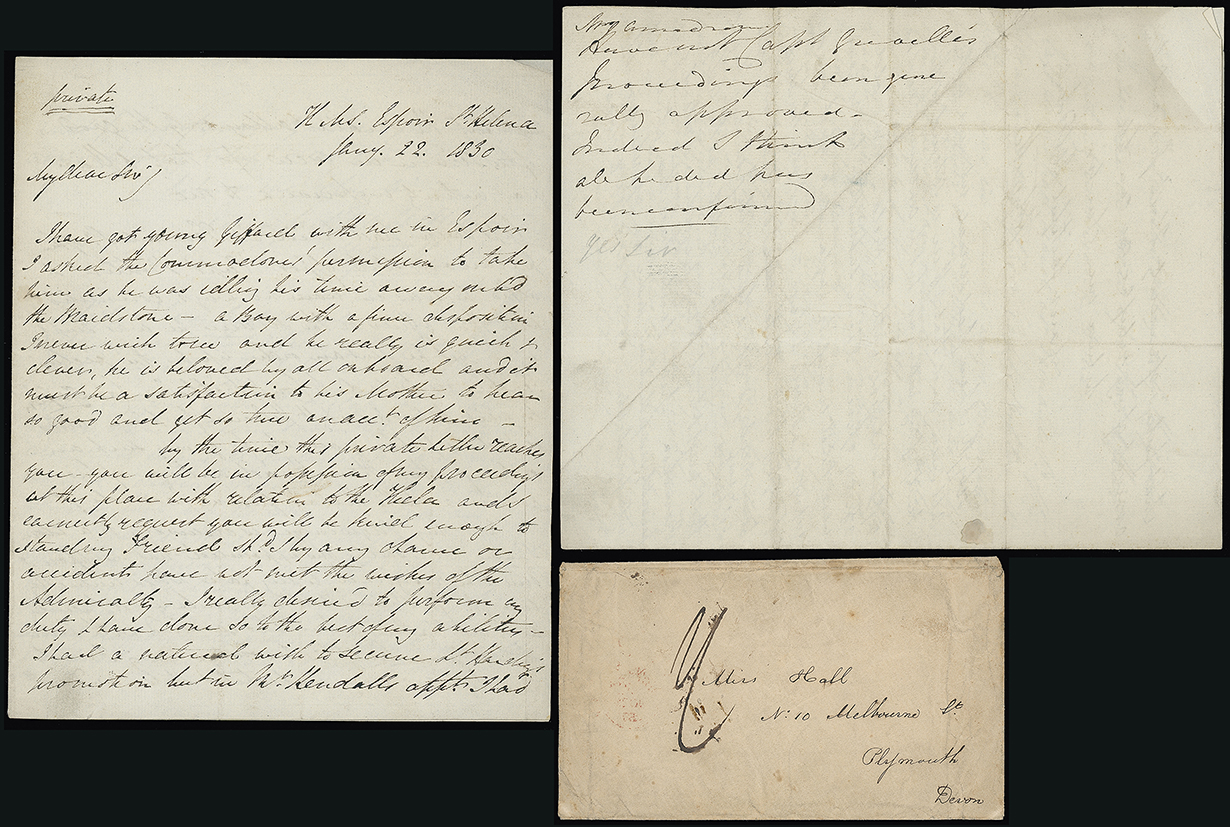 private
H.M.S. Espoir St Helena
Jany. 22. 1830
My dear Sir,
I have got young Giffard with me in Espoir
I asked the Commodores permission to take
him as he was idling his time away onbd
the Maidstone — a Boy with a finer disposition
I never wish to see and he really is quick &
clever, he is beloved by all onboard and it
must be a satisfaction to his Mother to hear
so good and yet so true an acct. of him —
by the time this private letter reaches
you — you will be in possession of my proceedings
at this place with relation to the Hecla and I
earnestly request you will be kind enough to
stand my Friend shd. I by any chance or
accidents have not met the wishes of the
Admiralty — I really desired to perform my
duty & have done so to the best of my abilities —
I had a natural wish to secure Lt. Harding's
promotion but in Mr. Kendalls appt. I had
Have not Capt Greville's
Proceedings been gene
rally approved —
Indeed I think
all he did has
been confirmed
yes Sir
Miss Hall
No: 10 Melbourne St.
Plymouth
Devon